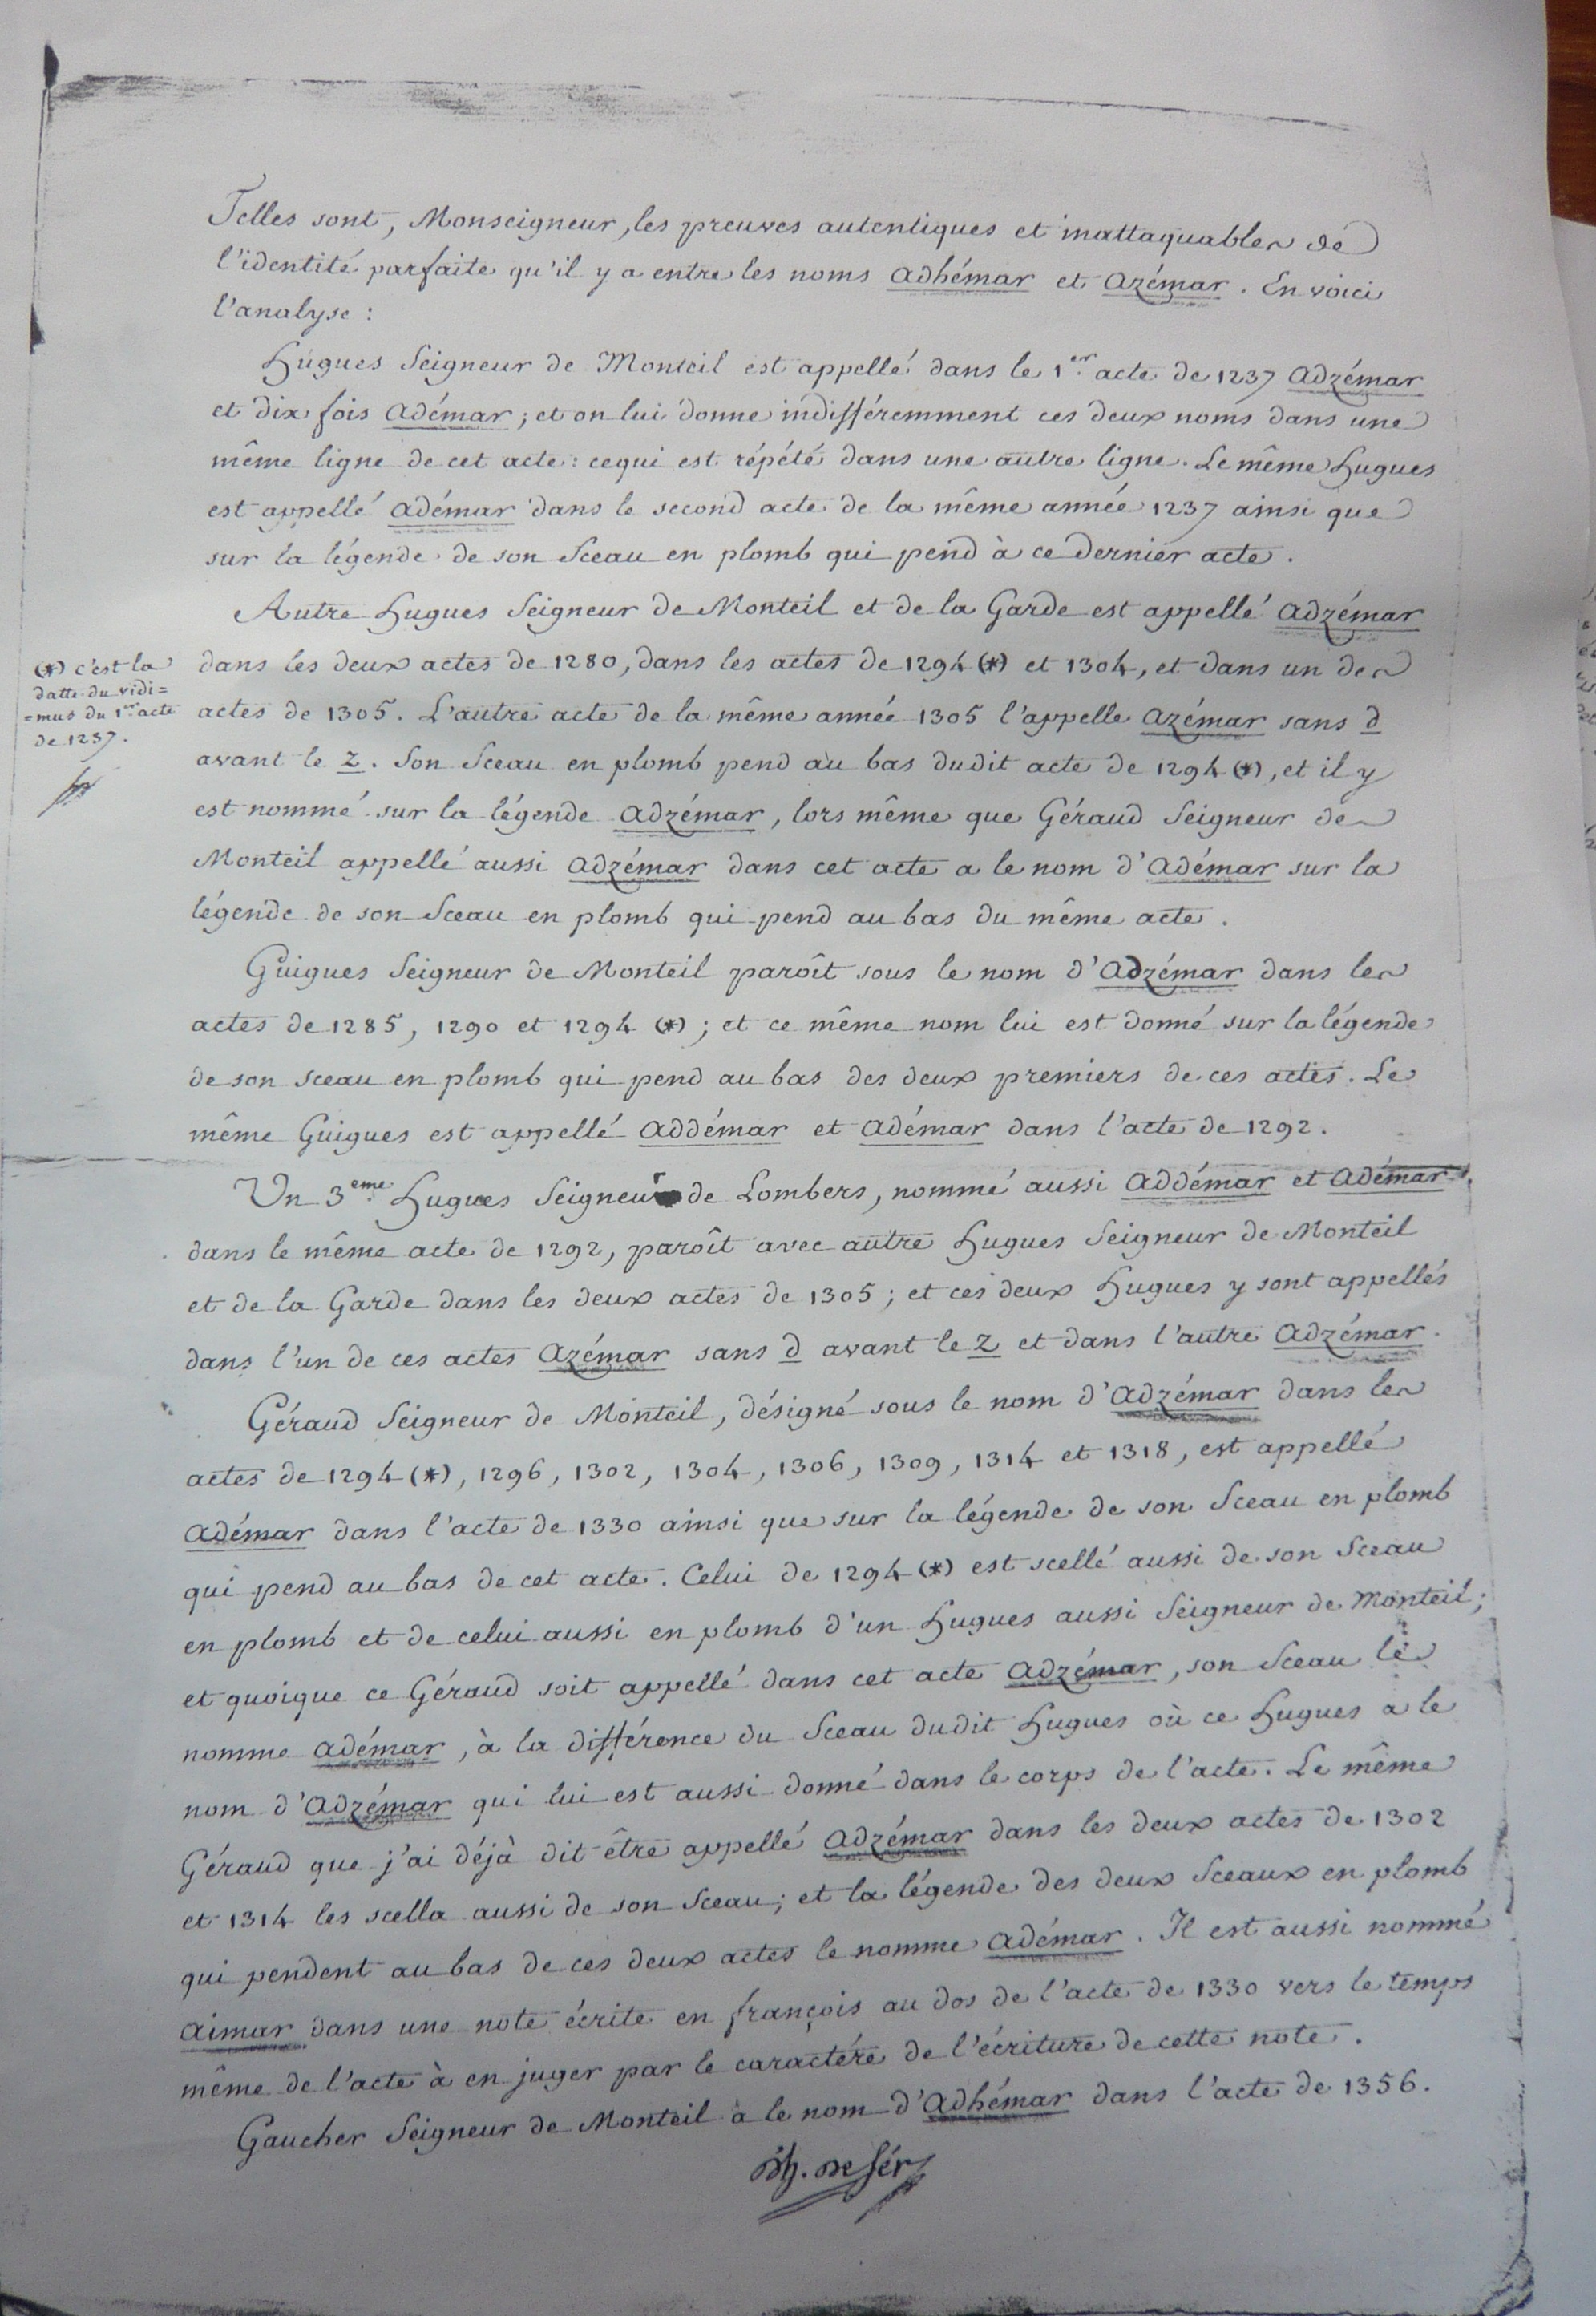 Telles sont, Monseigneur, les preuves autentiques et inattaquables de
l'identité parfaite qu'il y a entre les noms adhémar et azémar. En voici
l'analyse :
Hugues Seigneur de Monteil est appellé dans le 1.er acte de 1237 adzémar
et dix fois adémar ; et on lui donne indifféremment ces deux noms dans une
même ligne de cet acte : cequi est répété dans une autre ligne. Le même Hugues
est appellé adémar dans le second acte de la même année 1237 ainsi que
sur la légende de son Sceau en plomb qui pend à ce dernier acte.
Autre Hugues Seigneur de Monteil et de la Garde est appellé adzémar
dans les deux actes de 1280, dans les actes de 1294 (*) et 1304, et dans un des
actes de 1305. L'autre acte de la même année 1305 l'appelle azémar sans d
avant le z. Son Sceau en plomb pend au bas dudit acte de 1294 (*), et il y
est nommé sur la légende adzémar, lors même que Géraud Seigneur de
Monteil appellé aussi adzémar dans cet acte a le nom d'adémar sur la
légende de son Sceau en plomb qui pend au bas du même acte.
Guigues Seigneur de Monteil paroît sous le nom d'adzémar dans les
actes de 1285, 1290 et 1294 (*) ; et ce même nom lui est donné sur la légende
de son sceau en plomb qui pend au bas des deux premiers de ces actes. Le
même Guigues est appellé addémar et adémar dans l'acte de 1292.
Un 3.eme Hugues Seigneur de Lombers, nommé aussi addémar et adémar
dans le même acte de 1292, paroît avec autre Hugues Seigneur de Monteil
et de la Garde dans les deux actes de 1305 ; et ces deux Hugues y sont appellés
dans l'un de ces actes azémar sans d avant le z et dans l'autre adzémar.
Géraud Seigneur de Monteil, désigné sous le nom d'adzémar dans les
actes de 1294 (*), 1296, 1302, 1304, 1306, 1309, 1314 et 1318, est appellé
adémar dans l'acte de 1330 ainsi que sur la légende de son Sceau en plomb
qui pend au bas de cet acte. Celui de 1294 (*) est scellé aussi de son Sceau
en plomb et de celui aussi en plomb d'un Hugues aussi Seigneur de Monteil ;
et quoique ce Géraud soit appellé dans cet acte adzémar, son Sceau le
nomme adémar, à la différence du Sceau dudit Hugues où ce Hugues a le
nom d'adzémar qui lui est aussi donné dans le corps de l'acte. Le même
Géraud que j'ai déjà dit être appellé adzémar dans les deux actes de 1302
et 1314 les scella aussi de son Sceau ; et la légende des deux Sceaux en plomb
qui pendent au bas de ces deux actes le nomme adémar. Il est aussi nommé
aimar dans une note écrite en françois au dos de l'acte de 1330 vers le temps
même de l'acte à en juger par le caractére de l'écriture de cette note.
Gaucher Seigneur de Monteil a le nom d'adhémar dans l'acte de 1356.
(*) c'est la
datte du vidi=
=mus du 1.er acte
de 1237.